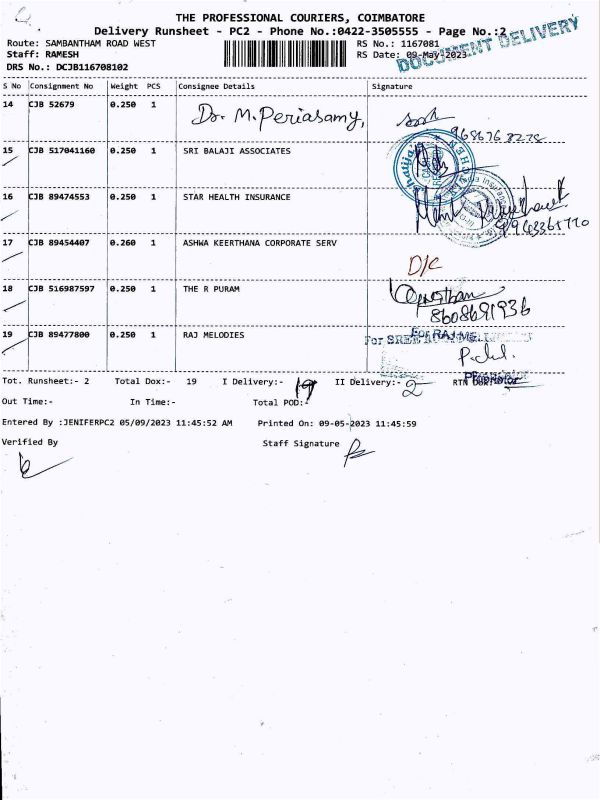 THE PROFESSIONAL COURIERS, COIMBATORE
Delivery Runsheet - PC2 - Phone No.:0422-3505555 - Page No.:2
DOCUMENT DELIVERY
Route: SAMBANTHAM ROAD WEST RS No.: 1167081
Staff: RAMESH RS Date: 09-May-2023
DRS No.: DCJB116708102
S No Consignment No Weight PCS Consignee Details Signature
14 CJB 52679 0.250 1 Dr. M. Periasamy,
15 CJB 517041160 0.250 1 SRI BALAJI ASSOCIATES
16 CJB 89474553 0.250 1 STAR HEALTH INSURANCE
17 CJB 89454407 0.260 1 ASHWA KEERTHANA CORPORATE SERV D/C
18 CJB 516987597 0.250 1 THE R PURAM
8608691936
19 CJB 89477800 0.250 1 RAJ MELODIES
Tot. Runsheet:- 2 Total Dox:- 19 I Delivery:- 19 II Delivery:- 2 RTN
Proprietor
Out Time:- In Time:- Total POD:-
Entered By :JENIFERPC2 05/09/2023 11:45:52 AM Printed On: 09-05-2023 11:45:59
Verified By Staff Signature